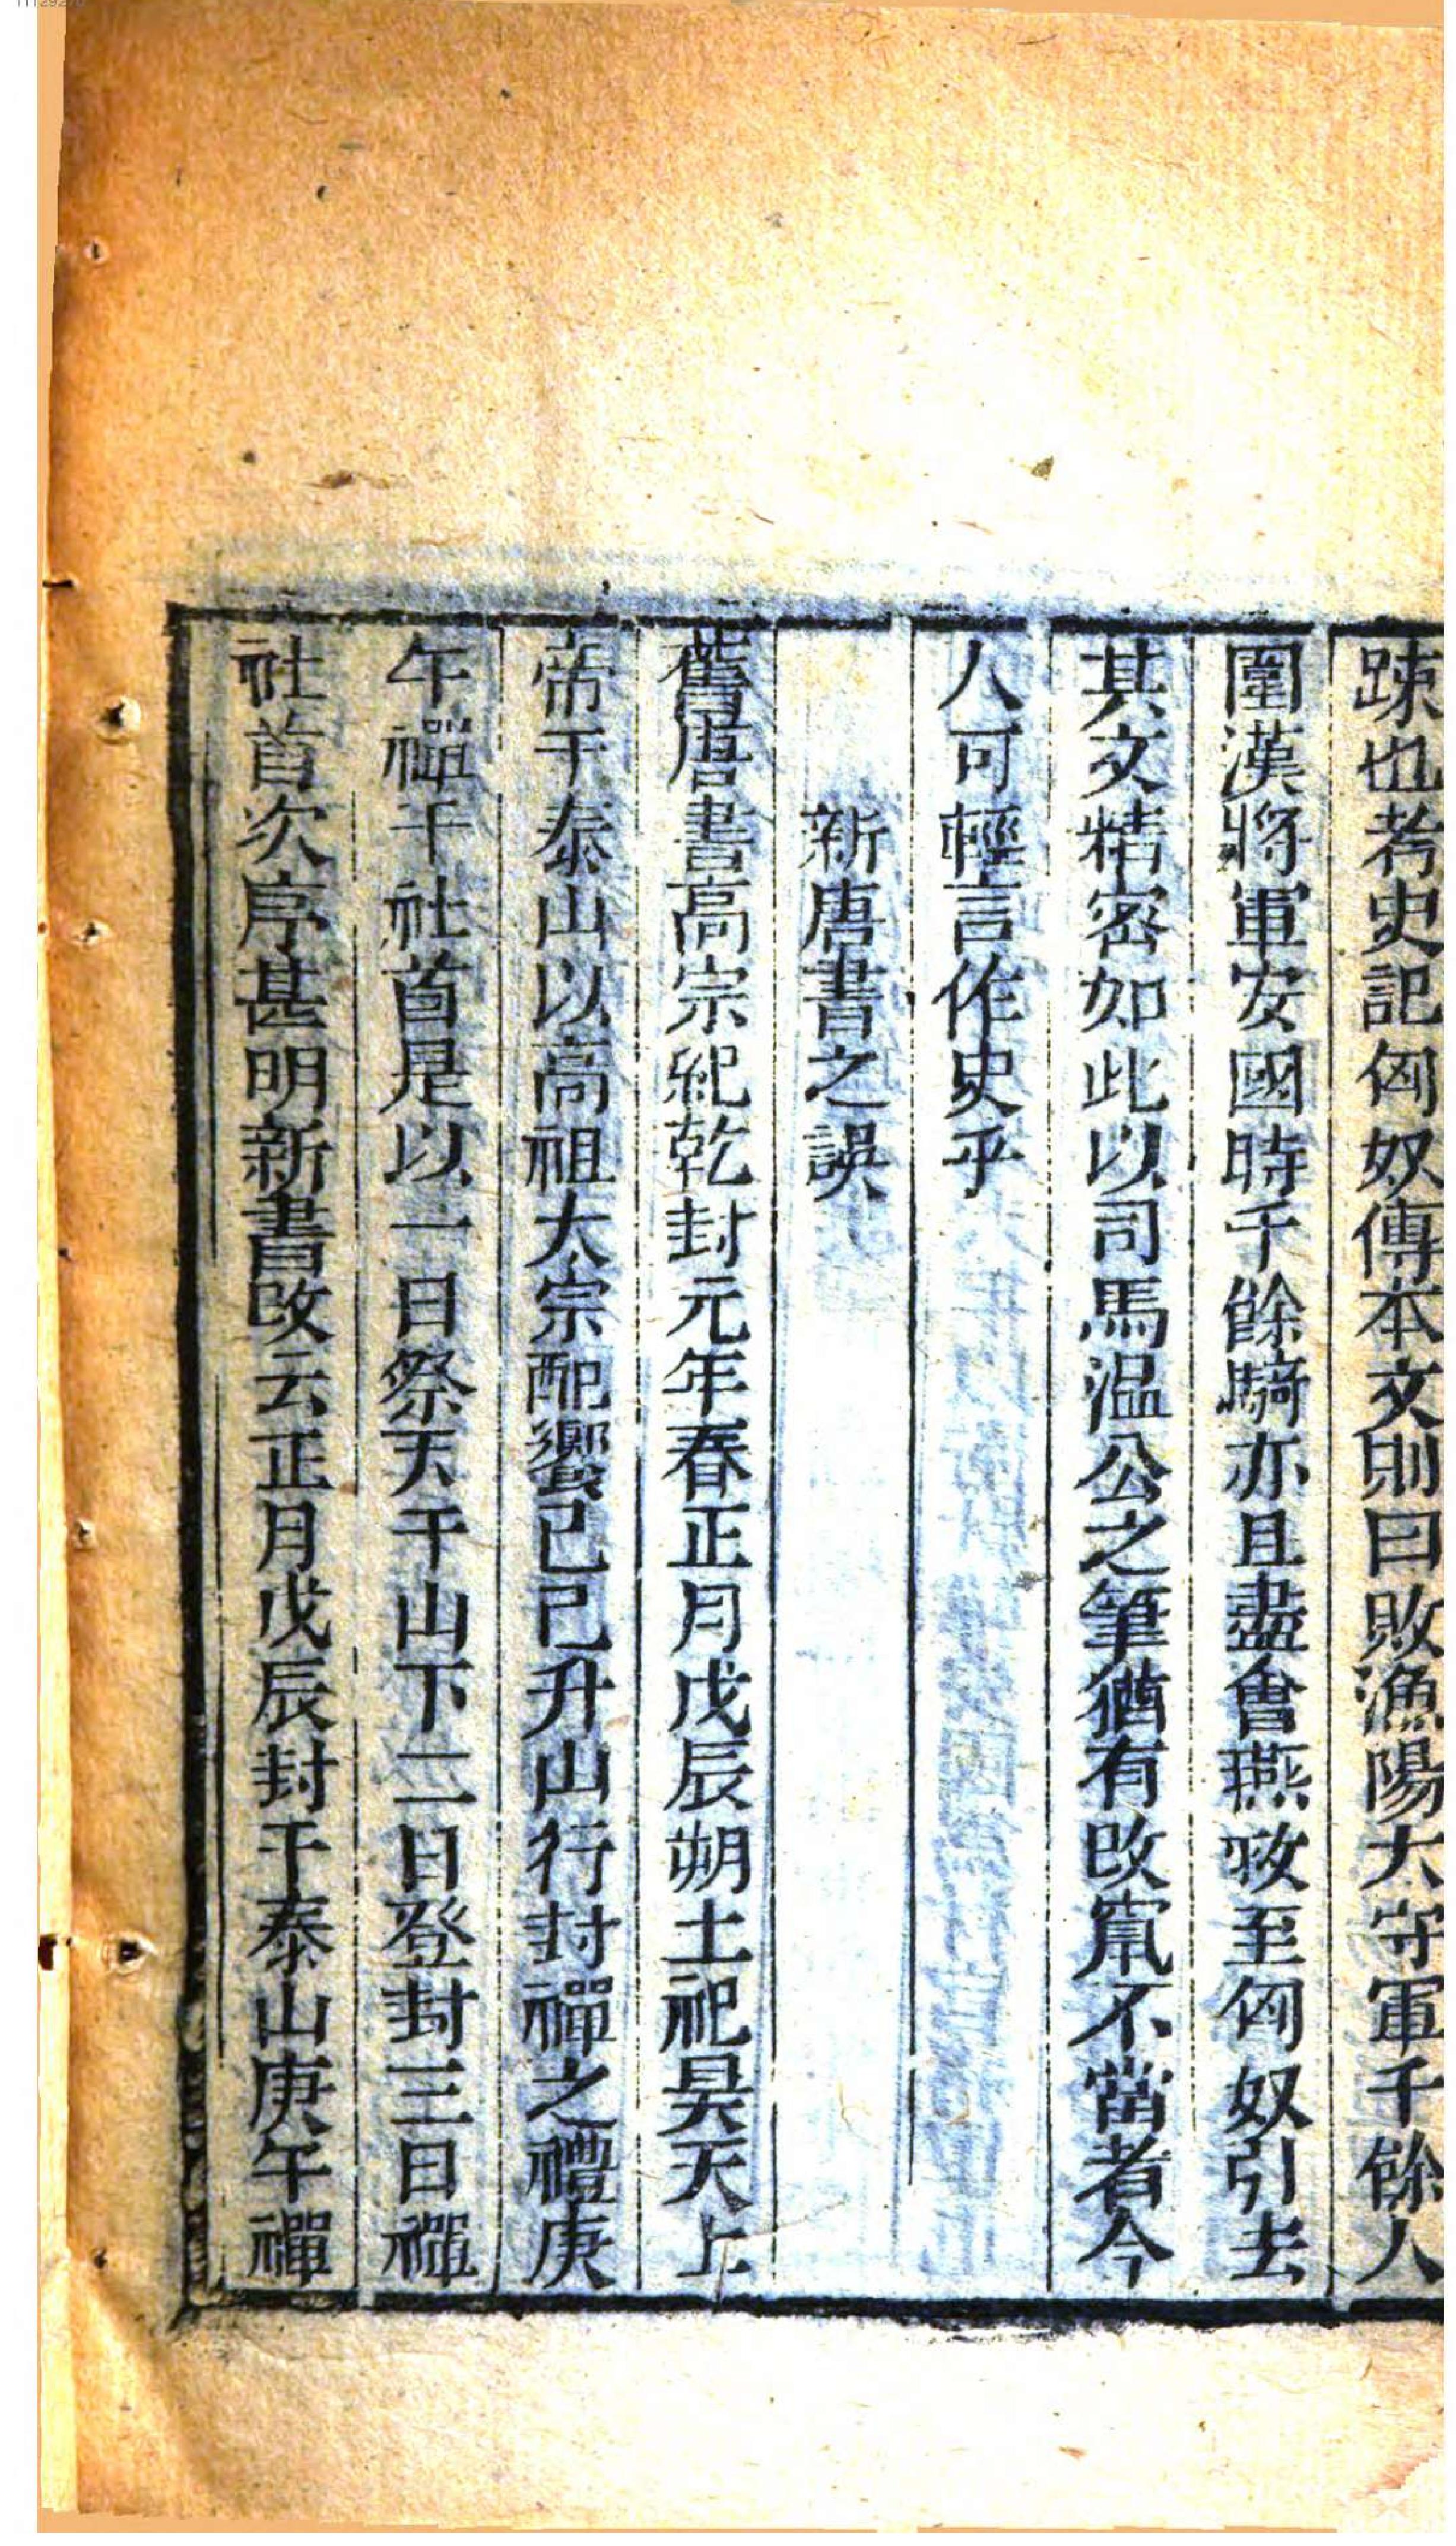 踈也考史記匈奴傳本文則曰敗漁陽太守軍千餘人
圍漢將軍安國時千餘騎亦且盡會燕救至匈奴引去
其文精密如此以司馬温公之筆猶有改竄不當者今
人可輕言作史乎
新唐書之誤
舊唐書高宗紀乾封元年春正月戊辰朔土祀昊天上
帝于泰山以高祖太宗配饗己巳升山行封禪之禮庚
午禪于社首是以一日祭天于山下二日登封三日禪
社首次序甚明新書改云正月戊辰封于泰山庚午禪